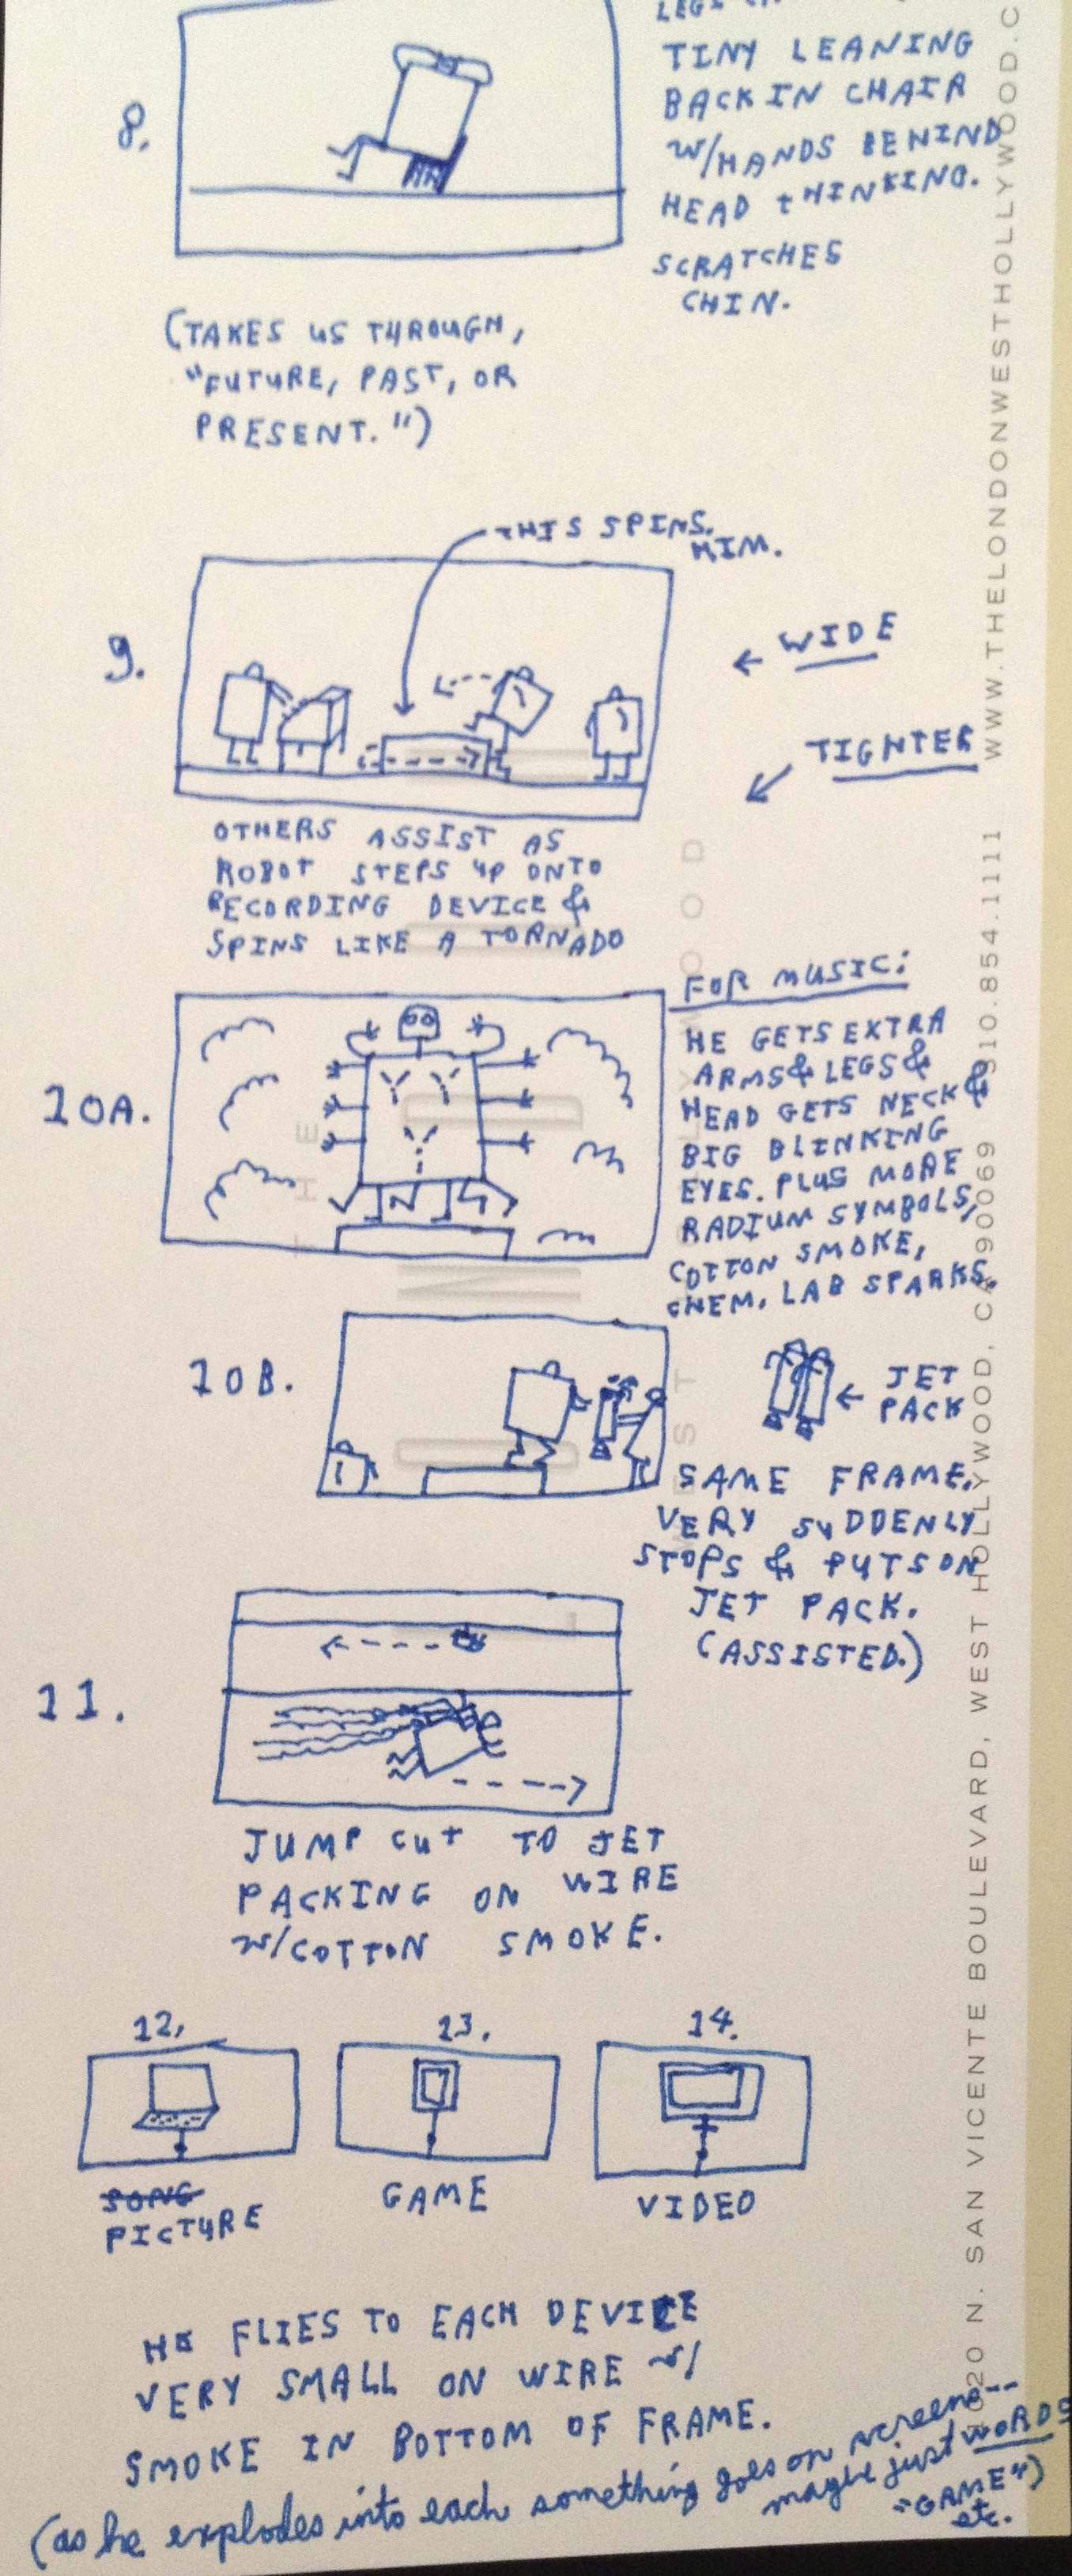 8.
TINY LEANING
BACK IN CHAIR
W/HANDS BEHIND
HEAD THINKING.
SCRATCHES
CHIN.
(TAKES US THROUGH,
"FUTURE, PAST, OR
PRESENT.")
THIS SPINS.
HIM.
9.
← WIDE
TIGHTER
OTHERS ASSIST AS
ROBOT STEPS UP ONTO
RECORDING DEVICE &
SPINS LIKE A TORNADO
10A.
FOR MUSIC:
HE GETS EXTRA
ARMS & LEGS &
HEAD GETS NECK &
BIG BLINKING
EYES. PLUS MORE
RADIUM SYMBOLS,
COTTON SMOKE,
CHEM. LAB SPARKS.
10B.
← JET
PACK
SAME FRAME.
VERY SUDDENLY
STOPS & PUTS ON
JET PACK.
(ASSISTED.)
11.
JUMP CUT TO JET
PACKING ON WIRE
W/COTTON SMOKE.
12.
13.
14.
SONG
PICTURE
GAME
VIDEO
HE FLIES TO EACH DEVICE
VERY SMALL ON WIRE W/
SMOKE IN BOTTOM OF FRAME.
(as he explodes into each something goes on screens--
maybe just WORDS
"GAME")
etc.
1020 N. SAN VICENTE BOULEVARD, WEST HOLLYWOOD, CA 90069 310.854.1111 WWW.THELONDONWESTHOLLYWOOD.C